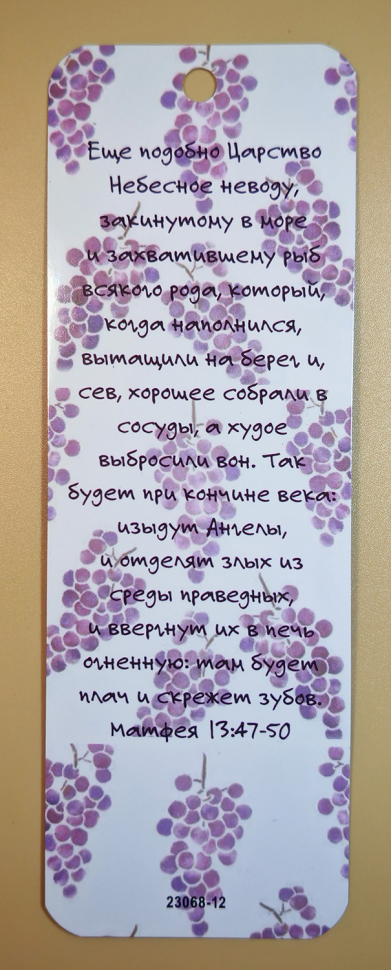 Еще подобно Царство
Небесное неводу,
закинутому в море
и захватившему рыб
всякого рода, который,
когда наполнился,
вытащили на берег и,
сев, хорошее собрали в
сосуды, а худое
выбросили вон. Так
будет при кончине века:
изыдут Ангелы,
и отделят злых из
среды праведных,
и ввергнут их в печь
огненную: там будет
плач и скрежет зубов.
Матфея 13:47-50
23068-12